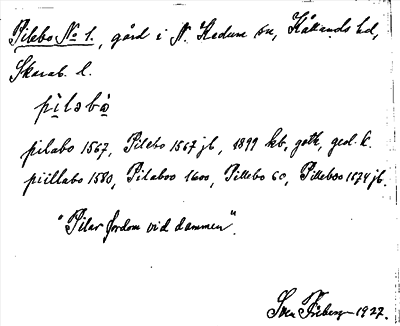 Pilebo No 1., gård i N. Kedum sn, Kållands hd,
Skarab. l.
pìləbò
pilabo 1567, Pilebo 1567 jb, 1899 kb, gstk, geol. k.
piillabo 1580, Pilaboo 1600, Pillebo 60, Pilleboo 1674 jb.
"Pilar fordom vid dammen".
Sven Friberg 1927.